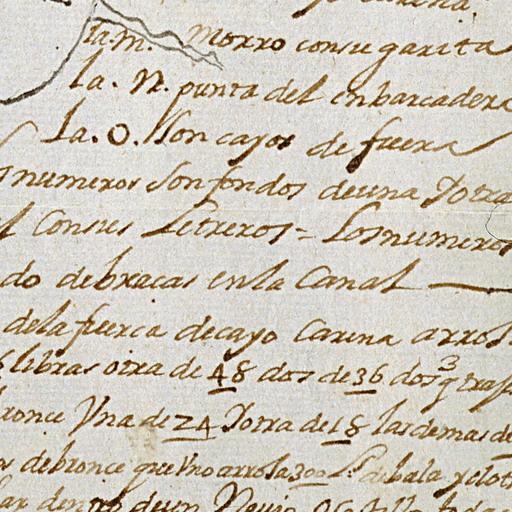 Carena.
la. m. morro consu garita
la. N. punta del enbarcadero
la. O. son cayos de fuera
numeros son fondos deuna Yotra
Consus Letreros = Los numeros
do debracas enla Canal
dela fuerca decayo Carena
libras otra de 48 dos de 36 dos
bronce Vna de 24 Yotra de 18 lasdemas de
debronce que Vno arroja 300 Ls. debala
dentro deun Nauio